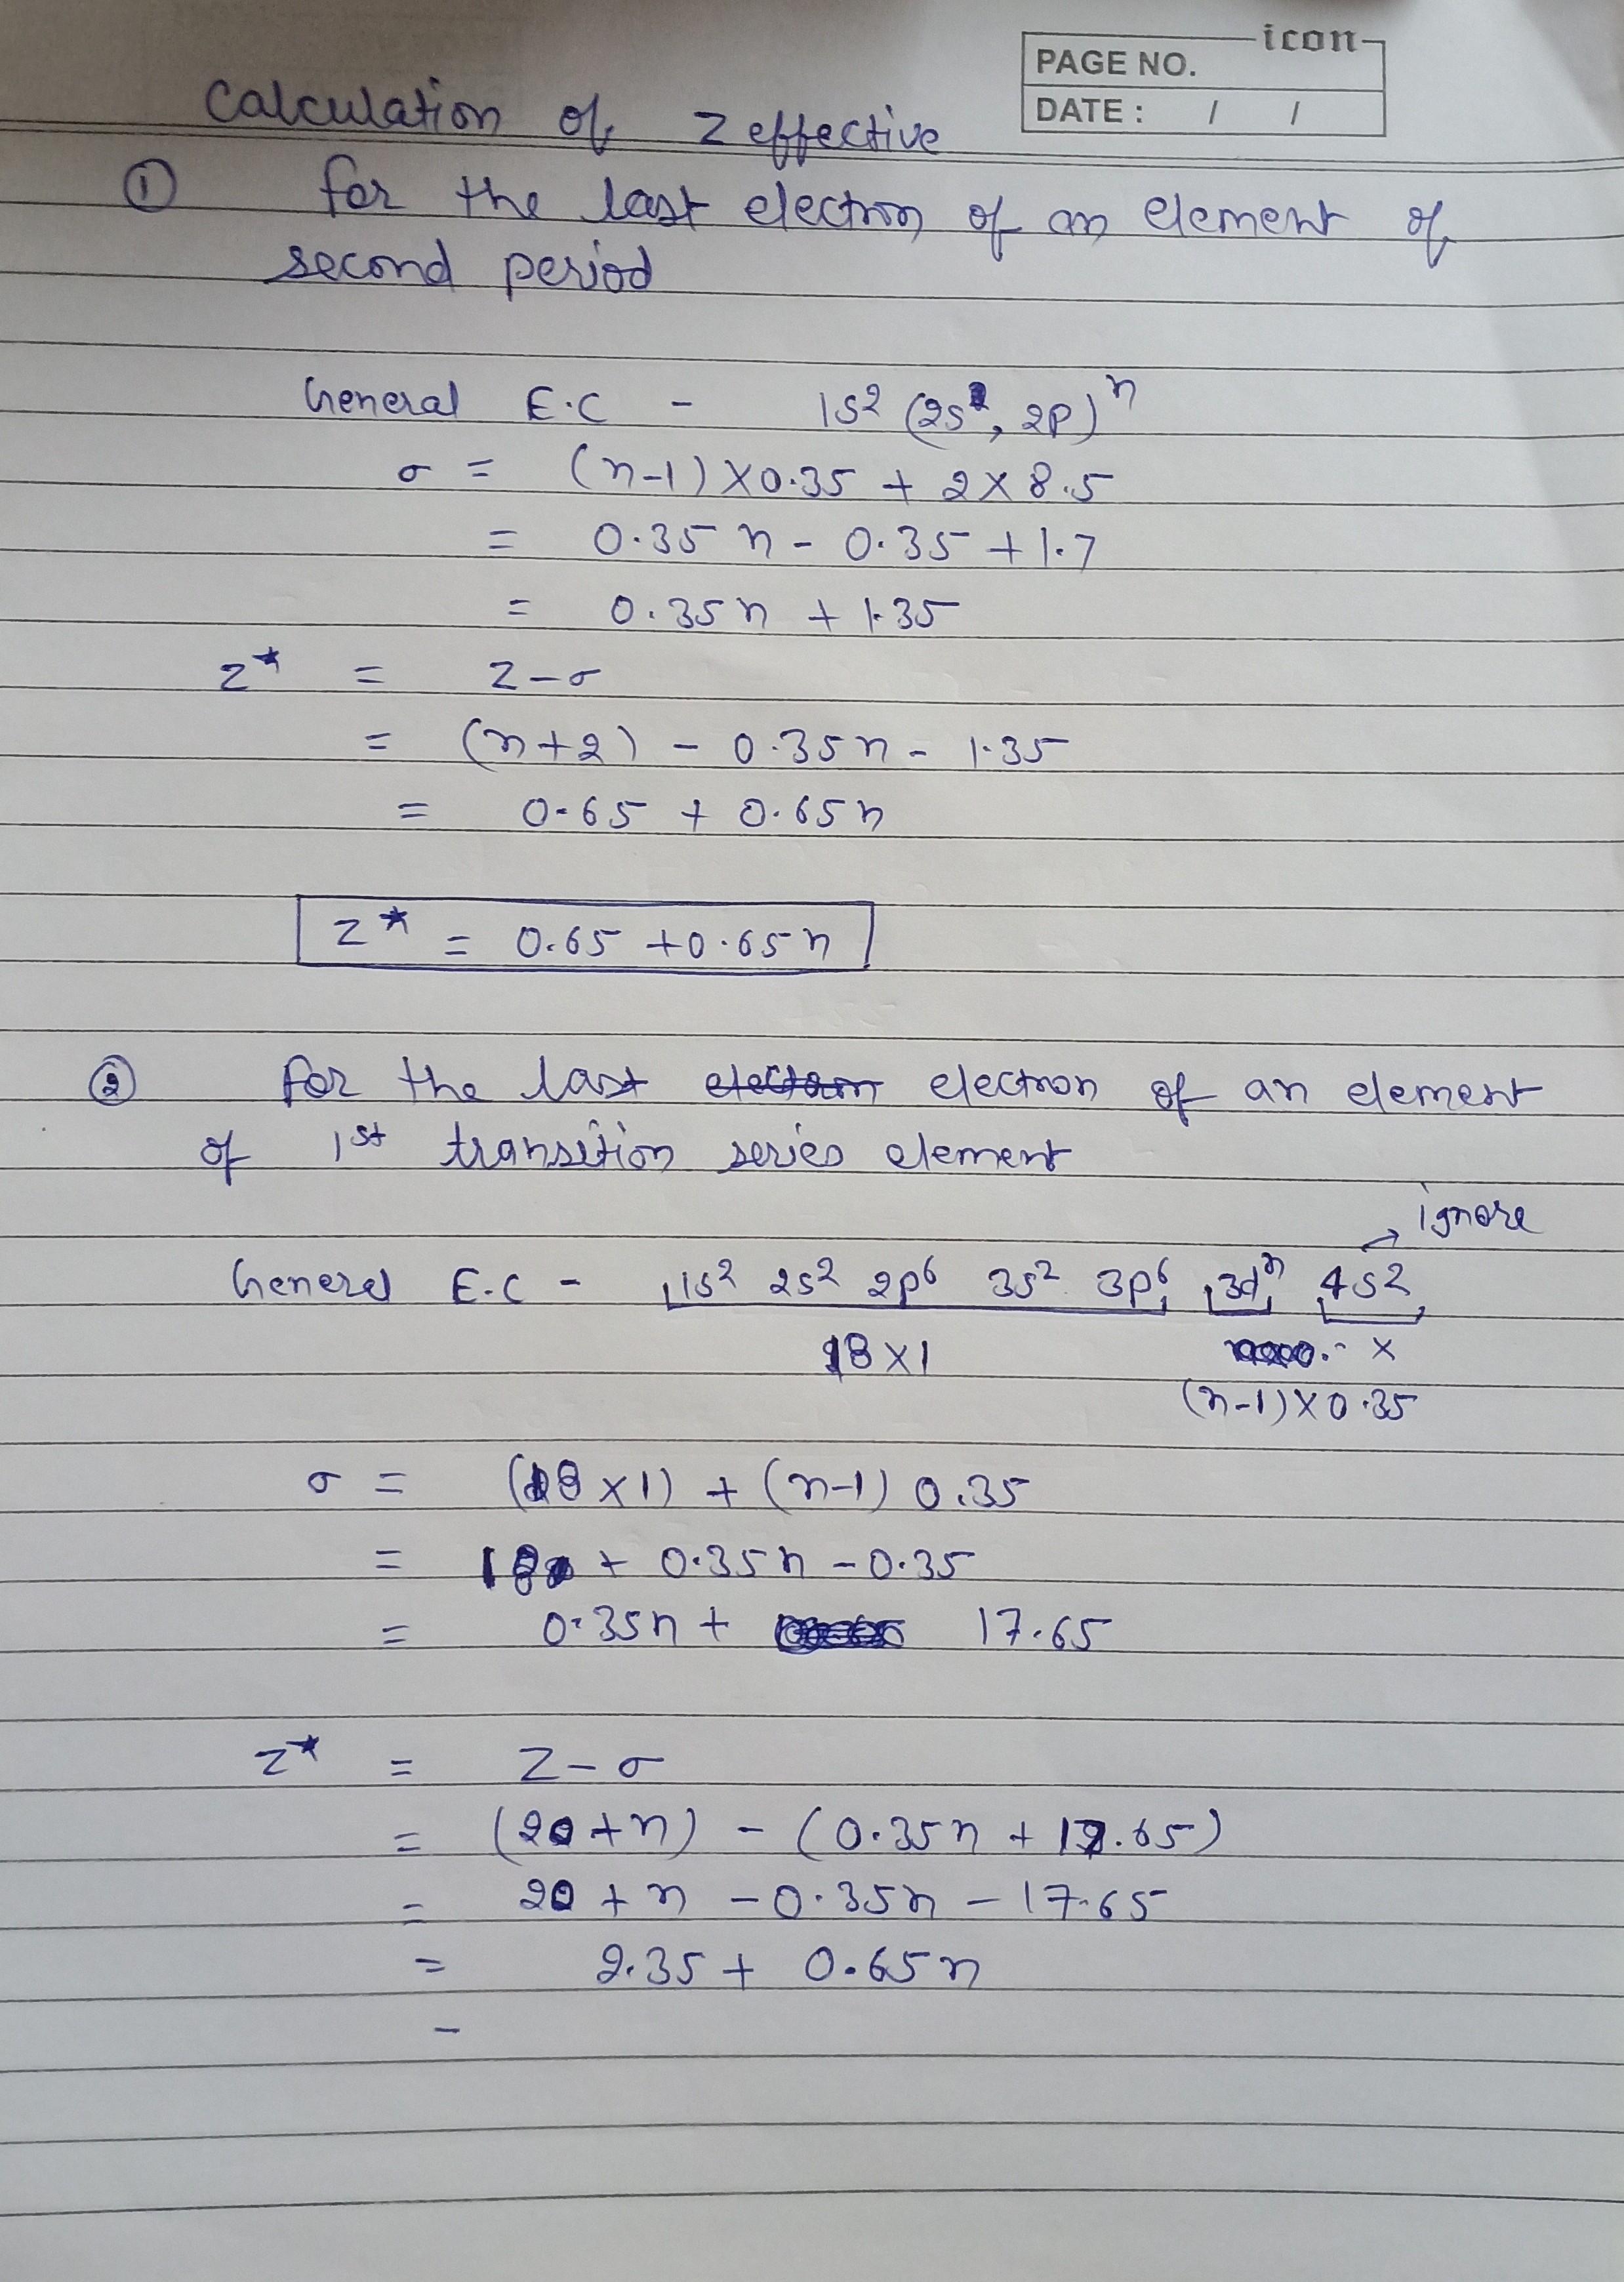 icon
PAGE NO.
DATE : / /
Calculation of Z effective
① for the last electron of an element of
second period
General E.C - 1s² (2s², 2p)ⁿ
σ = (n-1) X0.35 + 2 X 8.5
= 0.35 n - 0.35 + 1.7
= 0.35 n + 1.35
Z* = Z-σ
= (n+2) - 0.35 n - 1.35
= 0.65 + 0.65 n
Z* = 0.65 + 0.65 n
② for the last electron of an element
of 1st transition series element
ignore
General E.C - 1s² 2s² 2p⁶ 3s² 3p⁶ 3dⁿ 4s²
18 X 1 X
(n-1) X 0.35
σ = (18 x 1) + (n-1) 0.35
= 18 + 0.35 n - 0.35
= 0.35n + 17.65
Z* = Z-σ
= (20 + n) - (0.35 n + 17.65)
= 20 + n - 0.35n - 17.65
= 2.35 + 0.65 n
-